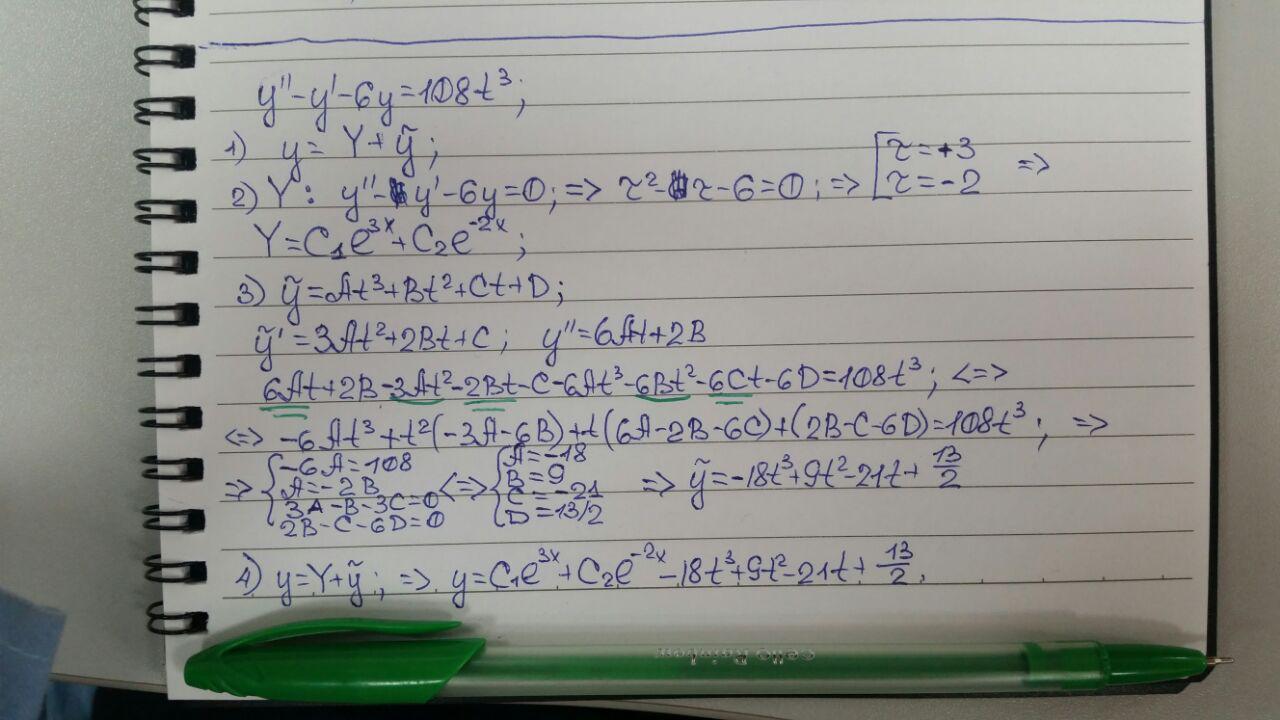 y''-y'-6y=108t³;
1) y= Y+ỹ;
2) Y: y''-y'-6y=0; => r²-r-6=0; => [r=+3 r=-2 =>
Y=C₁e³ˣ+C₂e⁻²ˣ;
3) ỹ=At³+Bt²+Ct+D;
ỹ'=3At²+2Bt+C; y''=6At+2B
6At+2B-3At²-2Bt-C-6At³-6Bt²-6Ct-6D=108t³; <=>
<=> -6At³+t²(-3A-6B)+t(6A-2B-6C)+(2B-C-6D)=108t³; =>
=> {-6A=108 A=-2B 3A-B-3C=0 2B-C-6D=0 <=> {A=-18 B=9 C=-21 D=13/2 => ỹ=-18t³+9t²-21t+13/2
4) y=Y+ỹ; => y=C₁e³ˣ+C₂e⁻²ˣ-18t³+9t²-21t+13/2.
Cello Rainbow